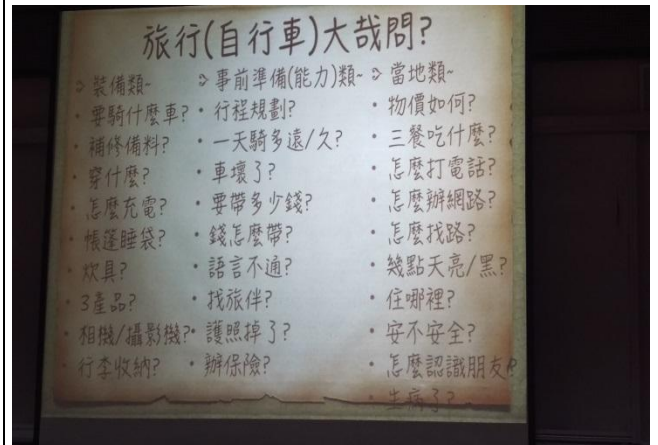 旅行(自行車)大哉問?
裝備類~
要騎什麼車?
補修備料?
穿什麼?
怎麼充電?
帳篷睡袋?
炊具?
3產品?
相機/攝影機?
行李收納?
事前準備(能力)類~
行程規劃?
一天騎多遠/久?
車壞了?
要帶多少錢?
錢怎麼帶?
語言不通?
找旅伴?
護照掉了?
辦保險?
當地類~
物價如何?
三餐吃什麼?
怎麼打電話?
怎麼辦網路?
怎麼找路?
幾點天亮/黑?
住哪裡?
安不安全?
怎麼認識朋友?
生病了?